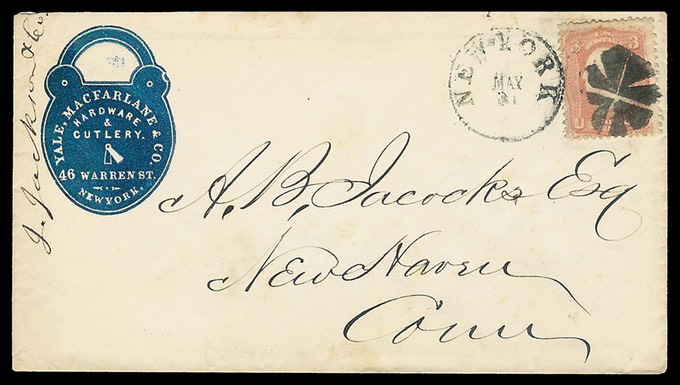 J. Jackson & Co.
YALE, MACFARLANE & CO.
HARDWARE
&
CUTLERY.
46 WARREN ST.
NEW YORK.
NEW-YORK
MAY
31
3 3
U
A. B. Jacocks Esq
New Haven
Conn